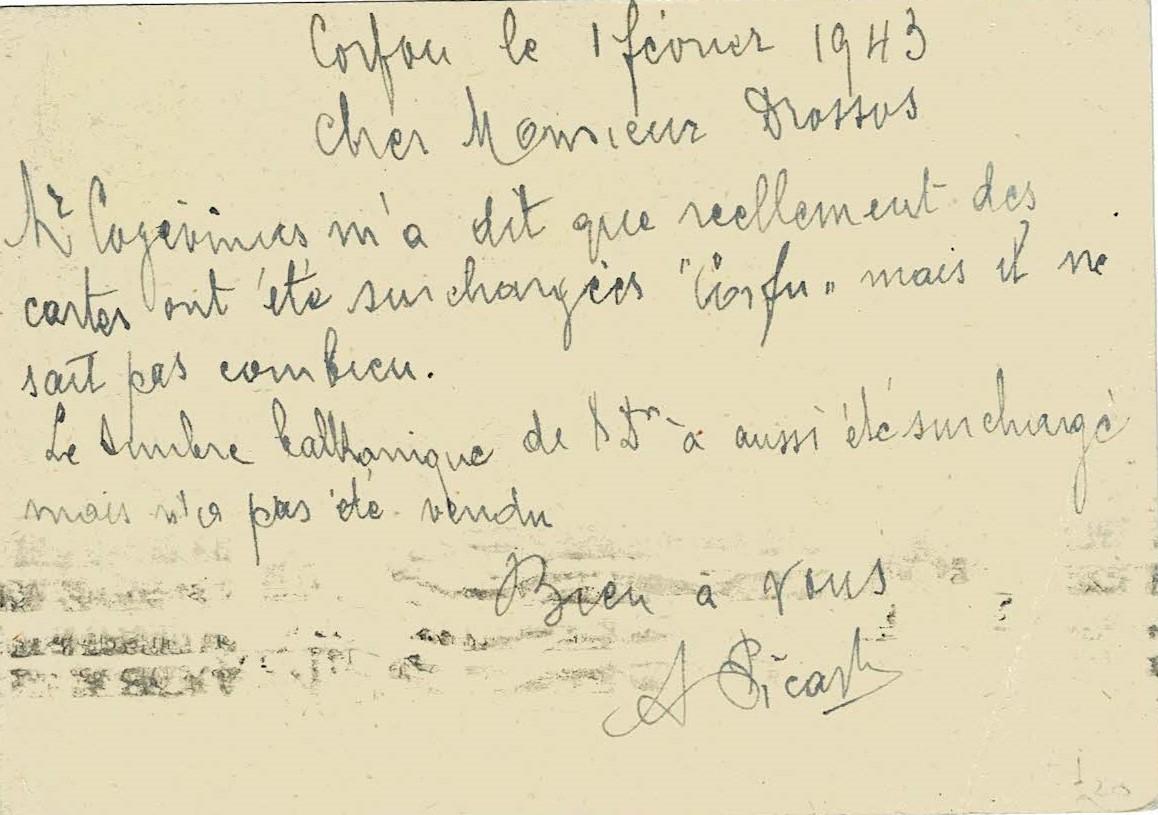 Corfou le 1 février 1943
Cher Monsieur Drossos
Mr Cogevinas m'a dit que reellement des
cartes ont été surchargées "Corfu" mais il ne
sait pas combien.
Le timbre balkanique de 8 Dr à aussi été surchargé
mais n'a pas été vendu
Bien à vous
A Picard